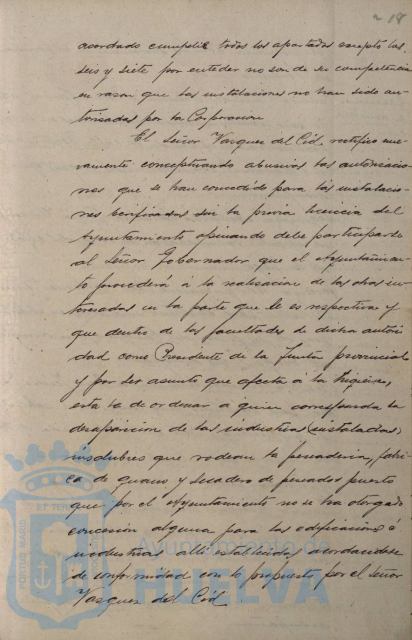 18
acordado cumplir todos los apartados excepto los
seis y siete por enteder no son de su competencia
en razon que las instalaciones no han sido au-
torizadas por la Corporacion
El Señor Vazquez del Cid, rectifico nue-
vamente conceptuando abusivas las autorizacio-
nes que se han concedido para las instalacio-
nes berificadas sin la previa licencia del
Ayuntamiento opinando debe participarse
al Señor Gobernador que el Ayuntamien-
to procederá a la realizacion de las obras in-
teresadas en la parte que le es respectiva y
que dentro de las facultades de dicha autori-
dad como Presidente de la Junta provincial
y por ser asunto que afecta á la higiene,
está la de ordenar a quien corresponda la
desaparicion de las industrias (instaladas)
insalubres que rodean la panaderia, fabri-
ca de guano y secadero de pescados puesto
que por el Ayuntamiento no se ha otorgado
concesion alguna para las edificaciones é
industrias alli establecidas, acordandose
de conformidad con lo propuesto por el Señor
Vazquez del Cid.
PORTUS MARIS ET TERRÆ
Ayuntamiento de
HUELVA